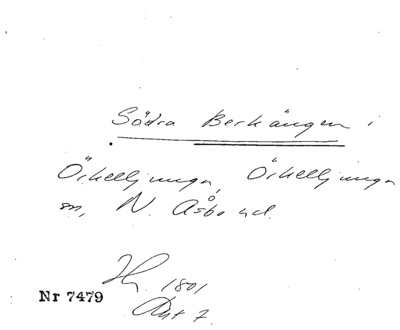 Södra Berkängen i
Örkelljunga, Örkelljunga
sn, N. Åsbo hd.
1801
Nr 7479
Akt 7.